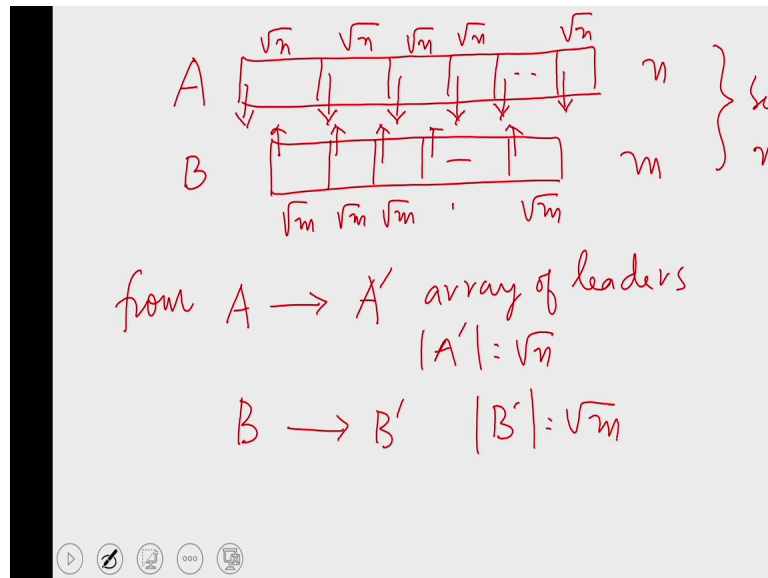 √n √n √n √n √n
A ·· n
B — m
√m √m √m . √m
from A → A′ array of leaders
|A′| : √n
B → B′ |B′| : √m